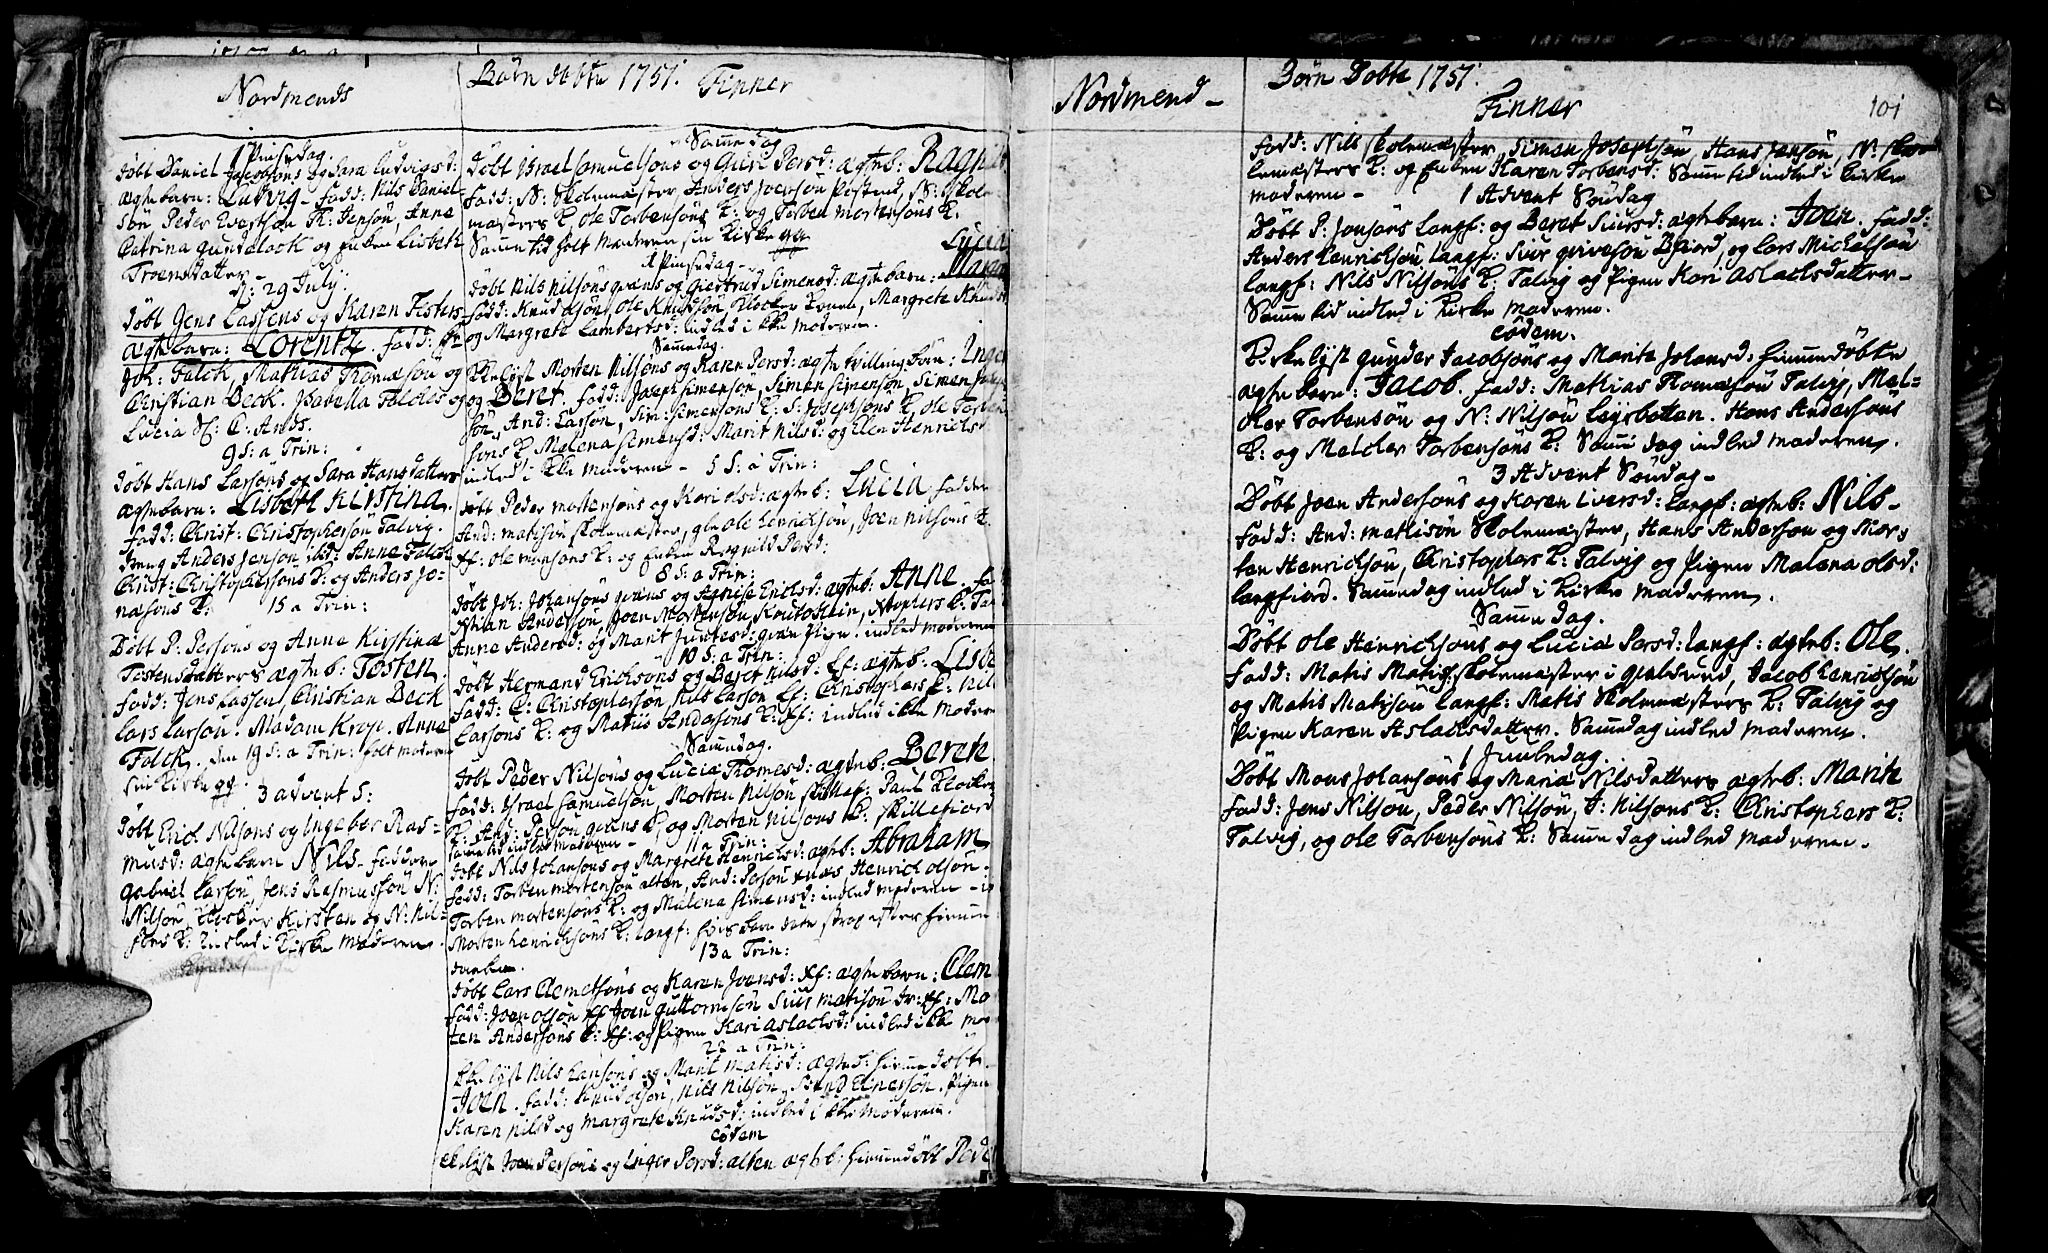 Børn døbte 1751.
Nordmends
Finner
1 Pinsedag.
Døbt Daniel Jacobsøns og Sara Ludvigsd:
ægte barn: Ludvig - fadd: Nils Daniel-
søn Peder Evertsøn Th: Jensøn, Anne
Catrina Gundelach og Enken Lisbeth
Troensdatter -
D: 29 July:
Døbt Jens Lassens og Karen Testers
ægte barn: Lorentz. fadd: Hr
Joh: Falck, Mathias Thomæsøn og
Christian Beck. Isabella Foldes og
Lucia Sl: C: Ands.
9 S: a Trin:
Døbt Hans Larsøns og Sara Hansdatters
ægte barn: Lisbeth Kirstina.
fadd: Christ: Christophersøn Talvig.
Dreng Anders Jensøn ibd: Anne Falck
Christ: Christophersøns K: og Anders Jo-
nasøns K:
15 a Trin:
Døbt P: Persøns og Anne Kirstina
Tostensdatters ægteb: Tosten.
fadd: Jens Lassen, Christian Beck
Lars Larsøn. Madam Krop. Anne
Falck. den 19 S: a Trin: holt moderen
sin Kirkegg.
3 advent S:
Døbt Erich Nilsøns og Ingebor Ras-
musd: ægte barn Nils - fadder
Gabriel Larsøn Jens Rasmussøn N:
Nilsøn, Klocker Karsten og N: Nil-
søns K: Indled i Kirke moderen.
Samme dag
Døbt Israel Samuelsøns og Guri Persd: ægteb: Ragnil
fadd: N: Skolemæster, Anders Joensøn Postend, N: Skole
mæsters K: Ole Torbensøns K: og Torben Mortensøns K.
Samme tid holt moderen sin Kirkegg
1 Pinsedag -
Lucia
Døbt Nils Nilsøns qvæns og Giertrud Simensd: ægte barn: Maren
fadd: Knud Olsøn, Ole Knudsøn, Klocker Karsten, Margrete Knudsd
og Margrete Lambertsd: indled i Kke moderen.
Samme dag.
Kke lyst Morten Nilsøns og Karen Persd: ægte tvilling børn: Inger
og Beret. fadd: Joseph Simensøn, Simen Simensøn, Simen Joseph
søn, And: Larsøn, Sim: Simensøns K: S: Josephsøns K: Ole Torben
søns K: Malena Simensd: Marit Nilsd: og Elen Henrichsd
indled i Kke moderen - 5 S: a Trin:
Døbt Peder Mortensøns og Kari Olsd: ægteb: Lucia. fadder
And: Matisøn Skolemæster, gl: Ole Henrichsøn, Joen Nilsøns K.
Kf: Ole Monsøns K: og Enken Ragnild Persd:
8 S: a Trin:
Døbt Joh: Johansøns qvæns og Agnise Erichsd: ægteb: Anne. fa
Christian Andersøn, Joen Mortensøn Koutokein, Xstophers K: Tal
Anne Andersd: og Marit Juntesd: qvæn Pigen: indled moderen
10 S: a Trin:
Døbt Hermand Erichsøns og Beret Nilsd: Lf: ægteb: Lisbe
fadd: C: Christophersøn, Nils Larsøn Lf: Christophers K: Nils
Larsøns K: og Matiis Andersøns K: Lf: indled i Kke moderen
Samme dag.
Døbt Peder Nilsøns og Lucia Thomesd: ægteb: Bereth
fadd: Israel Samuelsøn, Morten Nilsøn Skillef: Paul Klocker
K. And: Persøn qvæns K: og Morten Nilsøns K: Skillefiord
samme tid indled moderen -
11 a Trin:
Døbt Nils Johansøns og Margrete Henrichsd: ægteb: Abraham
fadd: Torben Mortensøn Alten, And: Persøn qvæns Henrich Olsøn -
Torben Mortensøns K: og Malena Simensd: indled moderen -
Morten Henrichsøns K: Langf:
13 a Trin:
Døbt Lars Clemetsøns og Karen Joensd: Kf: ægte barn: Clem
fadd: Joen Olsøn Kf Joen Guttormsøn Siur Matisøn Kr: Kf: Mo
ten Andersøns K: Kf: og Pigen Kari Aslachsd: indled i Kk mo
22 a Trin:
Kke lyst Nils Hansøns og Marit Matisd: ægteb: hiemmedøbt
Joen. fadd: Knud Olsøn, Nils Nilsøn, Svend Einersøn. Pigen
Karen Nilsd og Margrete Knudsd: indled i Kke moderen.
eodem
Kke lyst Joen Persøns og Inger Persd: Alten ægteb: hiemmedøbt Pede
Nordmend -
Børn Døbte 1751.
Finner
101
fadd: Nils Skolemæster, Simen Josephsøn Hans Jensøn, N: Skoe
lemæsters K: og Enken Karen Torbensd: Samme tid indled i Kirke
moderen -
1 Advent Søndag
Døbt P: Jonsøns Langf: og Beret Siursd: ægte barn: Joen. fadd:
Anders Henrichsøn Langf: Siur Grivesøn Biord, og Lars Michelsøn
Langf: Nils Nilsøns K: Talvig og Pigen Kari Aslachsdatter -
Samme tid indled i Kirke moderen.
eodem.
Kirke lyst Gunder Jacobsøns og Marite Johansd: hiemmedøbte
ægte barn: Jacob. fadd: Mathias Thomæsøn Talvig, Mel-
cher Torbensøn og N: Nilsøn Leysbotten. Hans Andersøns
K: og Melcher Torbensøns K: Samme dag indled moderen.
3 Advent Søndag -
Døbt Joen Andersøns og Karen Iversd: Langf: ægteb: Nils -
fadd: And: Mathisøn Skolemæster, Hans Andersøn og Mor-
ten Henrichsøn, Christophers K: Talvig og Pigen Malena Olsd:
Langfiord. Samme dag indled i Kirke moderen.
Samme dag.
Døbt Ole Henrichsøns og Lucia Persd: Langf: ægteb: Ole.
fadd: Matis Matis: Skolemæster i Qvalsund, Jacob Henrichsøn
og Matis Matisøn Langf: Matis Skolemæsters K: Talvig og
Pigen Karen Aslachsdatter. Samme dag indled moderen.
1 Juuledag.
Døbt Mons Johansøns og Maria Nilsdatters ægteb: Marite
fadd: Jens Nilsøn, Peder Nilsøn, J: Nilsøns K: Christophers K:
Talvig, og Ole Torbensøns K: Samme dag indled moderen.